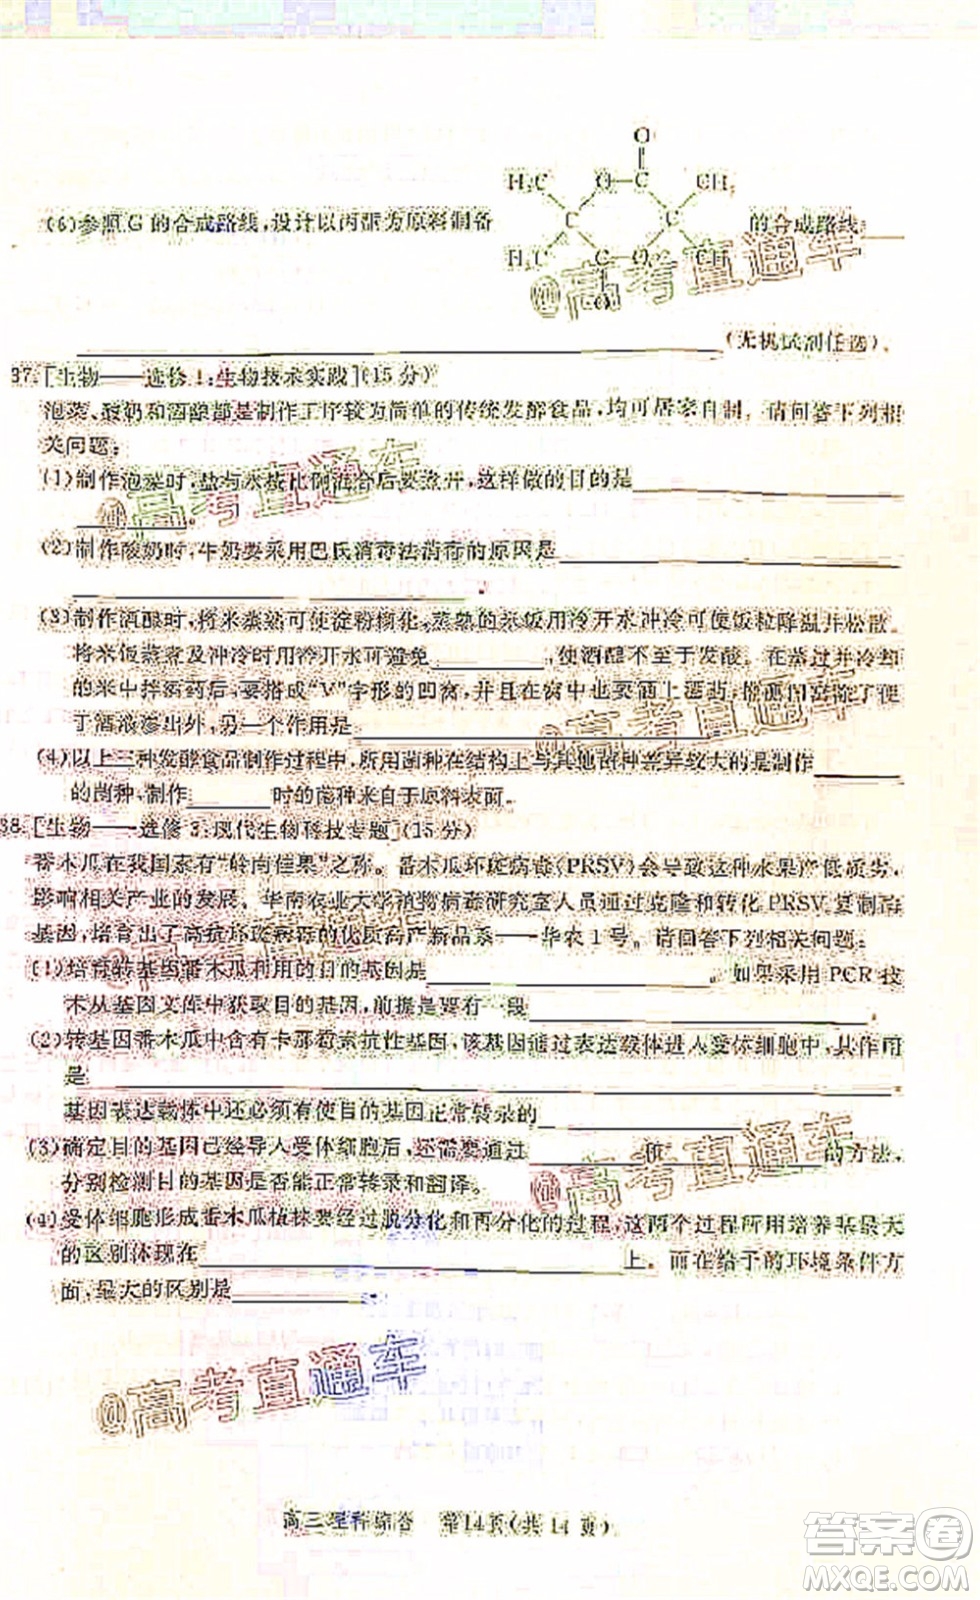 O
H₃C O—C CH₃
(6)参照G的合成路线,设计以丙酮为原料制备
C C
的合成路线
H₃C C O CH₃
O
(无机试剂任选)。
37.[生物——选修1:生物技术实践](15分)
泡菜、酸奶和酒酿都是制作工序较为简单的传统发酵食品,均可居家自制。请回答下列相
关问题:
(1)制作泡菜时,盐与水按比例混合后要煮开,这样做的目的是
。
(2)制作酸奶时,牛奶要采用巴氏消毒法消毒的原因是
。
(3)制作酒酿时,将米蒸熟可使淀粉糊化,蒸熟的米饭用冷开水冲冷可使饭粒降温并松散。
将米饭蒸煮与冲冷时用冷开水可避免 ,使酒酿不至于发酸。在蒸过并冷却
的米中拌酒药后,要搭成“V”字形的凹窝,并且在窝中也要洒上酒药,搭窝除了便
于酒液渗出外,另一个作用是
(4)以上三种发酵食品制作过程中,所用菌种在结构上与其他菌种差异较大的是制作
的菌种,制作 时的菌种来自于原料表面。
38.[生物——选修3:现代生物科技专题](15分)
番木瓜在我国素有“岭南佳果”之称。番木瓜环斑病毒(PRSV)会导致这种水果产低质劣,
影响相关产业的发展。华南农业大学植物病毒研究室人员通过克隆和转化PRSV复制酶
基因,培育出了高抗环斑病毒的优质高产新品系——华农1号。请回答下列相关问题:
(1)培育转基因番木瓜利用的目的基因是 。如果采用PCR技
术从基因文库中获取目的基因,前提是要有一段 。
(2)转基因番木瓜中含有卡那霉素抗性基因,该基因通过表达载体进入受体细胞中,其作用
是 。
基因表达载体中还必须有使目的基因正常转录的 。
(3)确定目的基因已经导入受体细胞后,还需要通过 和 的方法,
分别检测目的基因是否能正常转录和翻译。
(4)受体细胞形成番木瓜植株要经过脱分化和再分化的过程,这两个过程所用培养基最大
的区别体现在 上。而在给予的环境条件方
面,最大的区别是 。
@高考直通车
高三理科综合 第14页(共14页)
答案圈
MXQE.COM